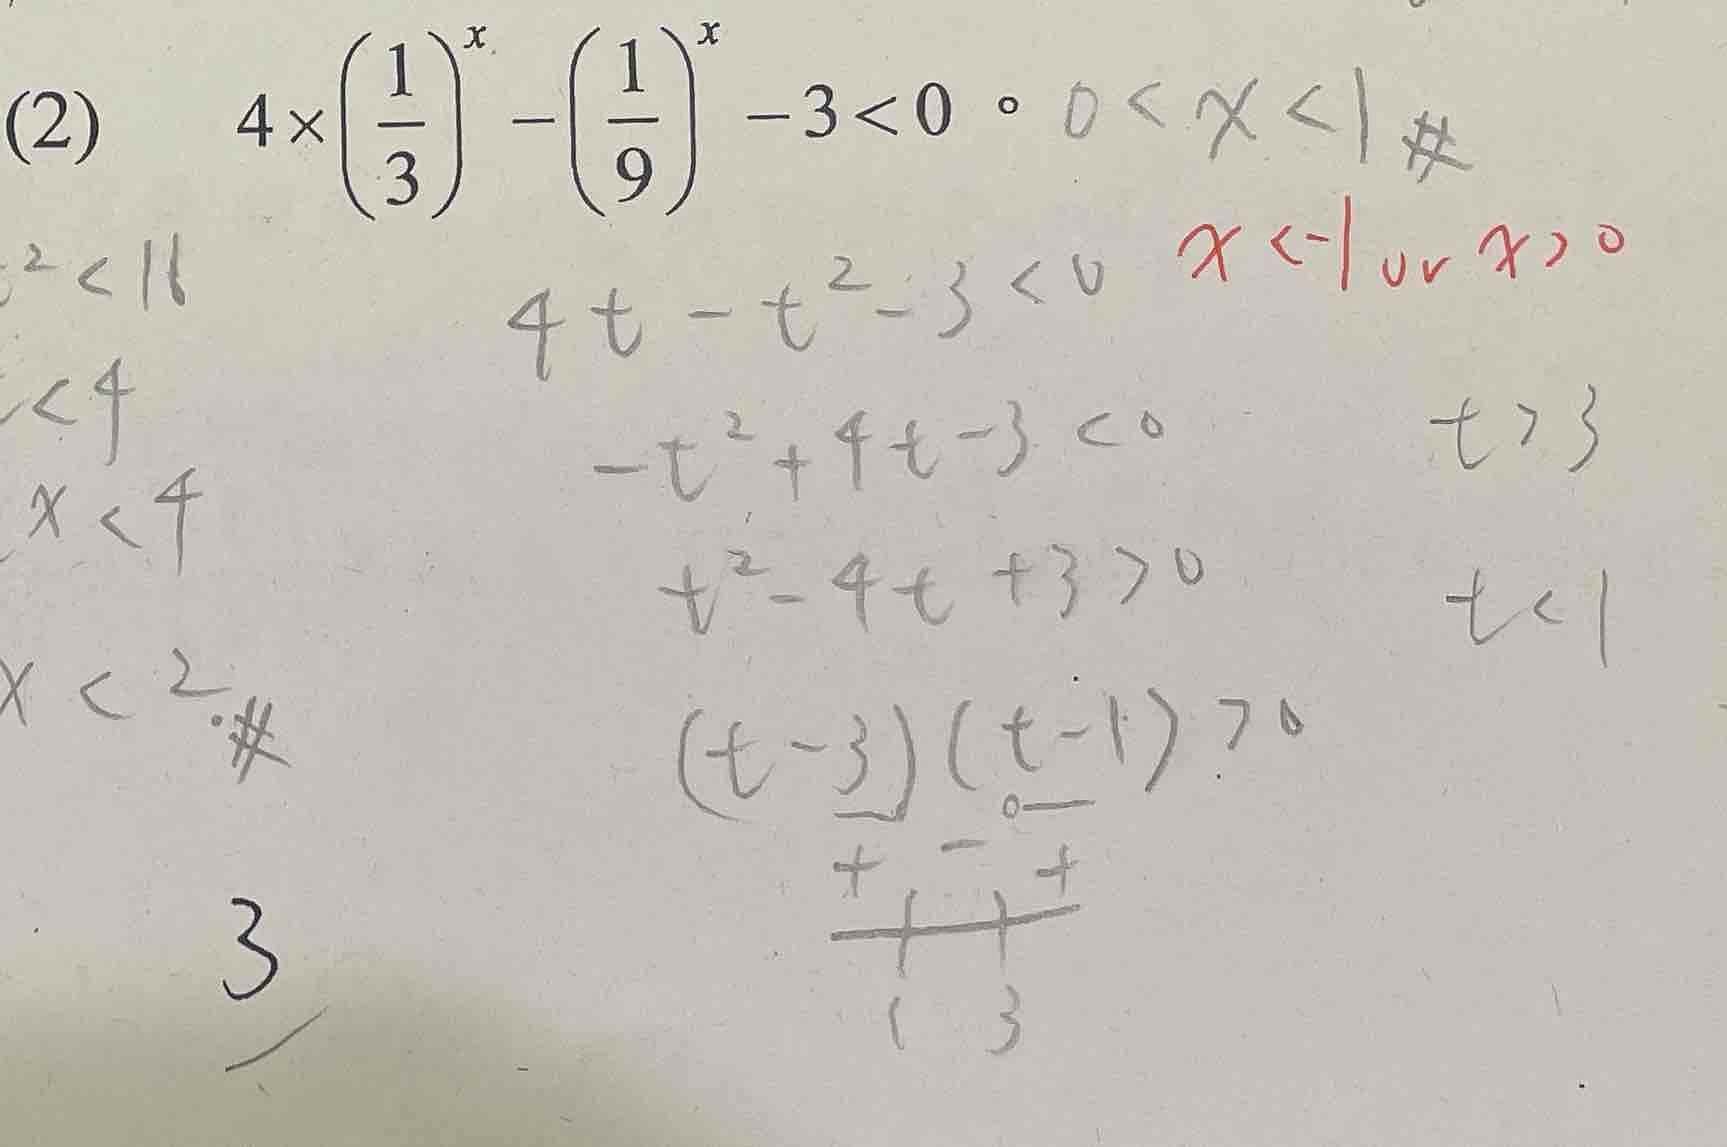 (2) 4×(1/3)^x −(1/9)^x −3<0 。 0<x<1 #
x<-1 or x>0
² < 16
4t - t² - 3 < 0
< 4
-t² + 4t - 3 < 0
t > 3
x < 4
t² - 4t + 3 > 0
t < 1
x < 2 #
(t-3)(t-1) > 0
+ - +
1 3
3